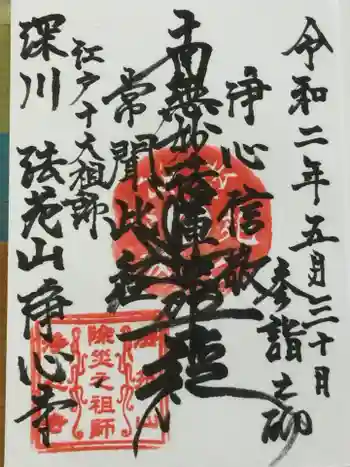 令和二年五月三十日
参詣之砌
浄心信敬
南無妙法蓮華経
常聞此経
江戸十大祖師
深川 法苑山 浄心寺
除災之祖師